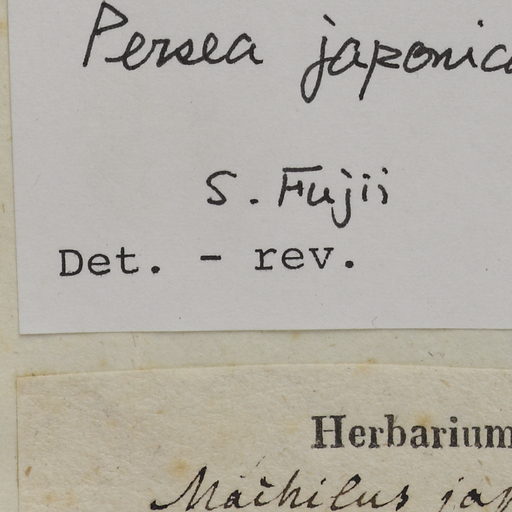 Persea japonica
S. Fujii
Det. - rev.
Herbarium
Machilus jap